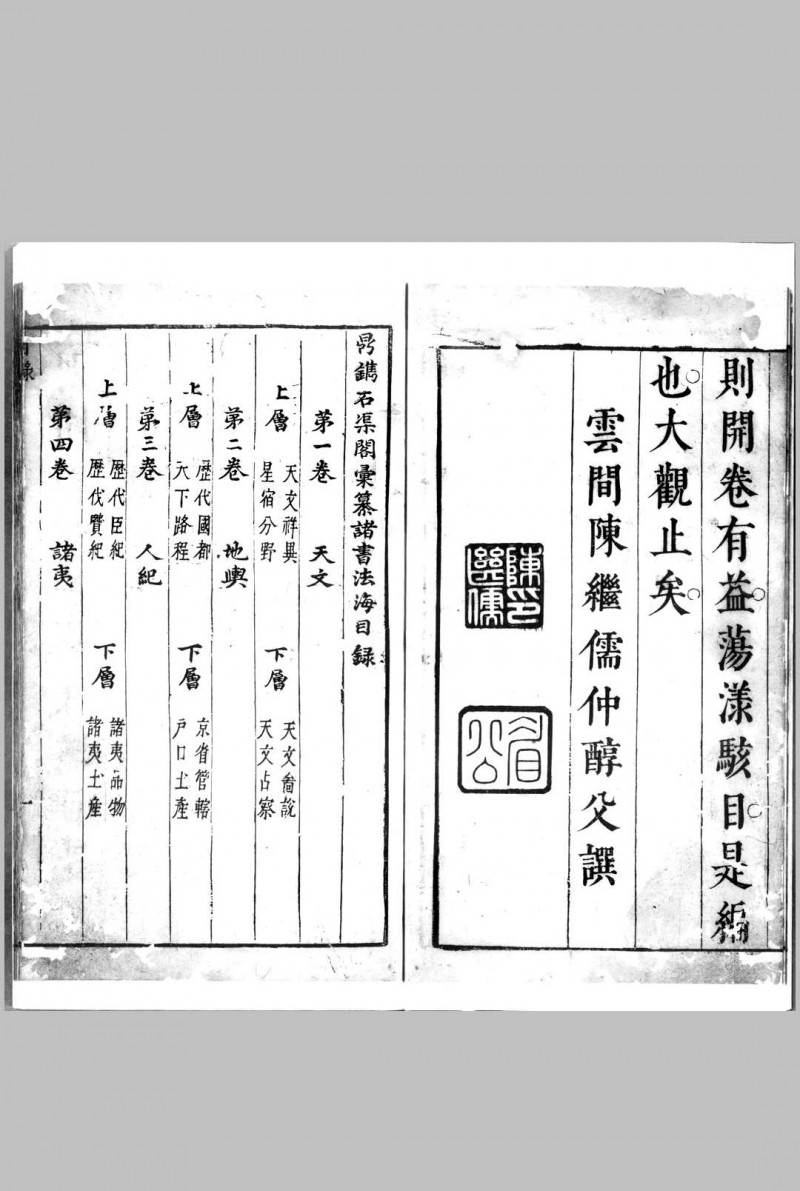 則開卷有益蕩漾駭目是編
也大觀止矣
雲間陳繼儒仲醇父譔
陳印繼儒
眉公
鼎鐫石渠閣彙纂諸書法海目錄
第一卷 天文
上層 天文祥異 星宿分野 下層 天文啚說 天文占察
第二卷 地輿
上層 歷代國都 天下路程 下層 京省管轄 戶口土產
第三卷 人紀
上層 歷代臣紀 歷代贊紀 下層 諸夷品物 諸夷土產
第四卷 諸夷
目錄